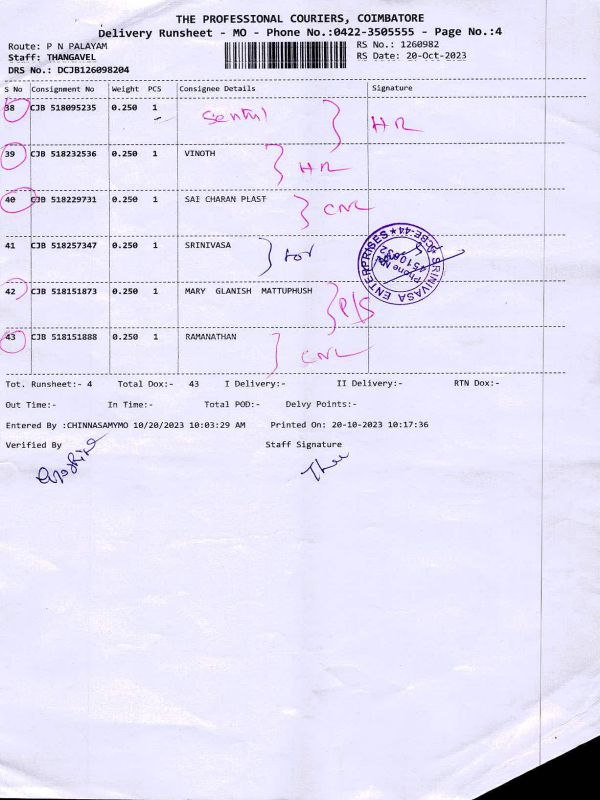 THE PROFESSIONAL COURIERS, COIMBATORE
Delivery Runsheet - MO - Phone No.:0422-3505555 - Page No.:4
Route: P N PALAYAM RS No.: 1260982
Staff: THANGAVEL RS Date: 20-Oct-2023
DRS No.: DCJB126098204
S No Consignment No Weight PCS Consignee Details Signature
38 CJB 518095235 0.250 1 HR
39 CJB 518232536 0.250 1 VINOTH HR
40 CJB 518229731 0.250 1 SAI CHARAN PLAST CNL
41 CJB 518257347 0.250 1 SRINIVASA SRINIVASA ENTERPRISES
42 CJB 518151873 0.250 1 MARY GLANISH MATTUPHUSH P/S
43 CJB 518151888 0.250 1 RAMANATHAN CNL
Tot. Runsheet:- 4 Total Dox:- 43 I Delivery:- II Delivery:- RTN Dox:-
Out Time:- In Time:- Total POD:- Delvy Points:-
Entered By :CHINNASAMYMO 10/20/2023 10:03:29 AM Printed On: 20-10-2023 10:17:36
Verified By Staff Signature